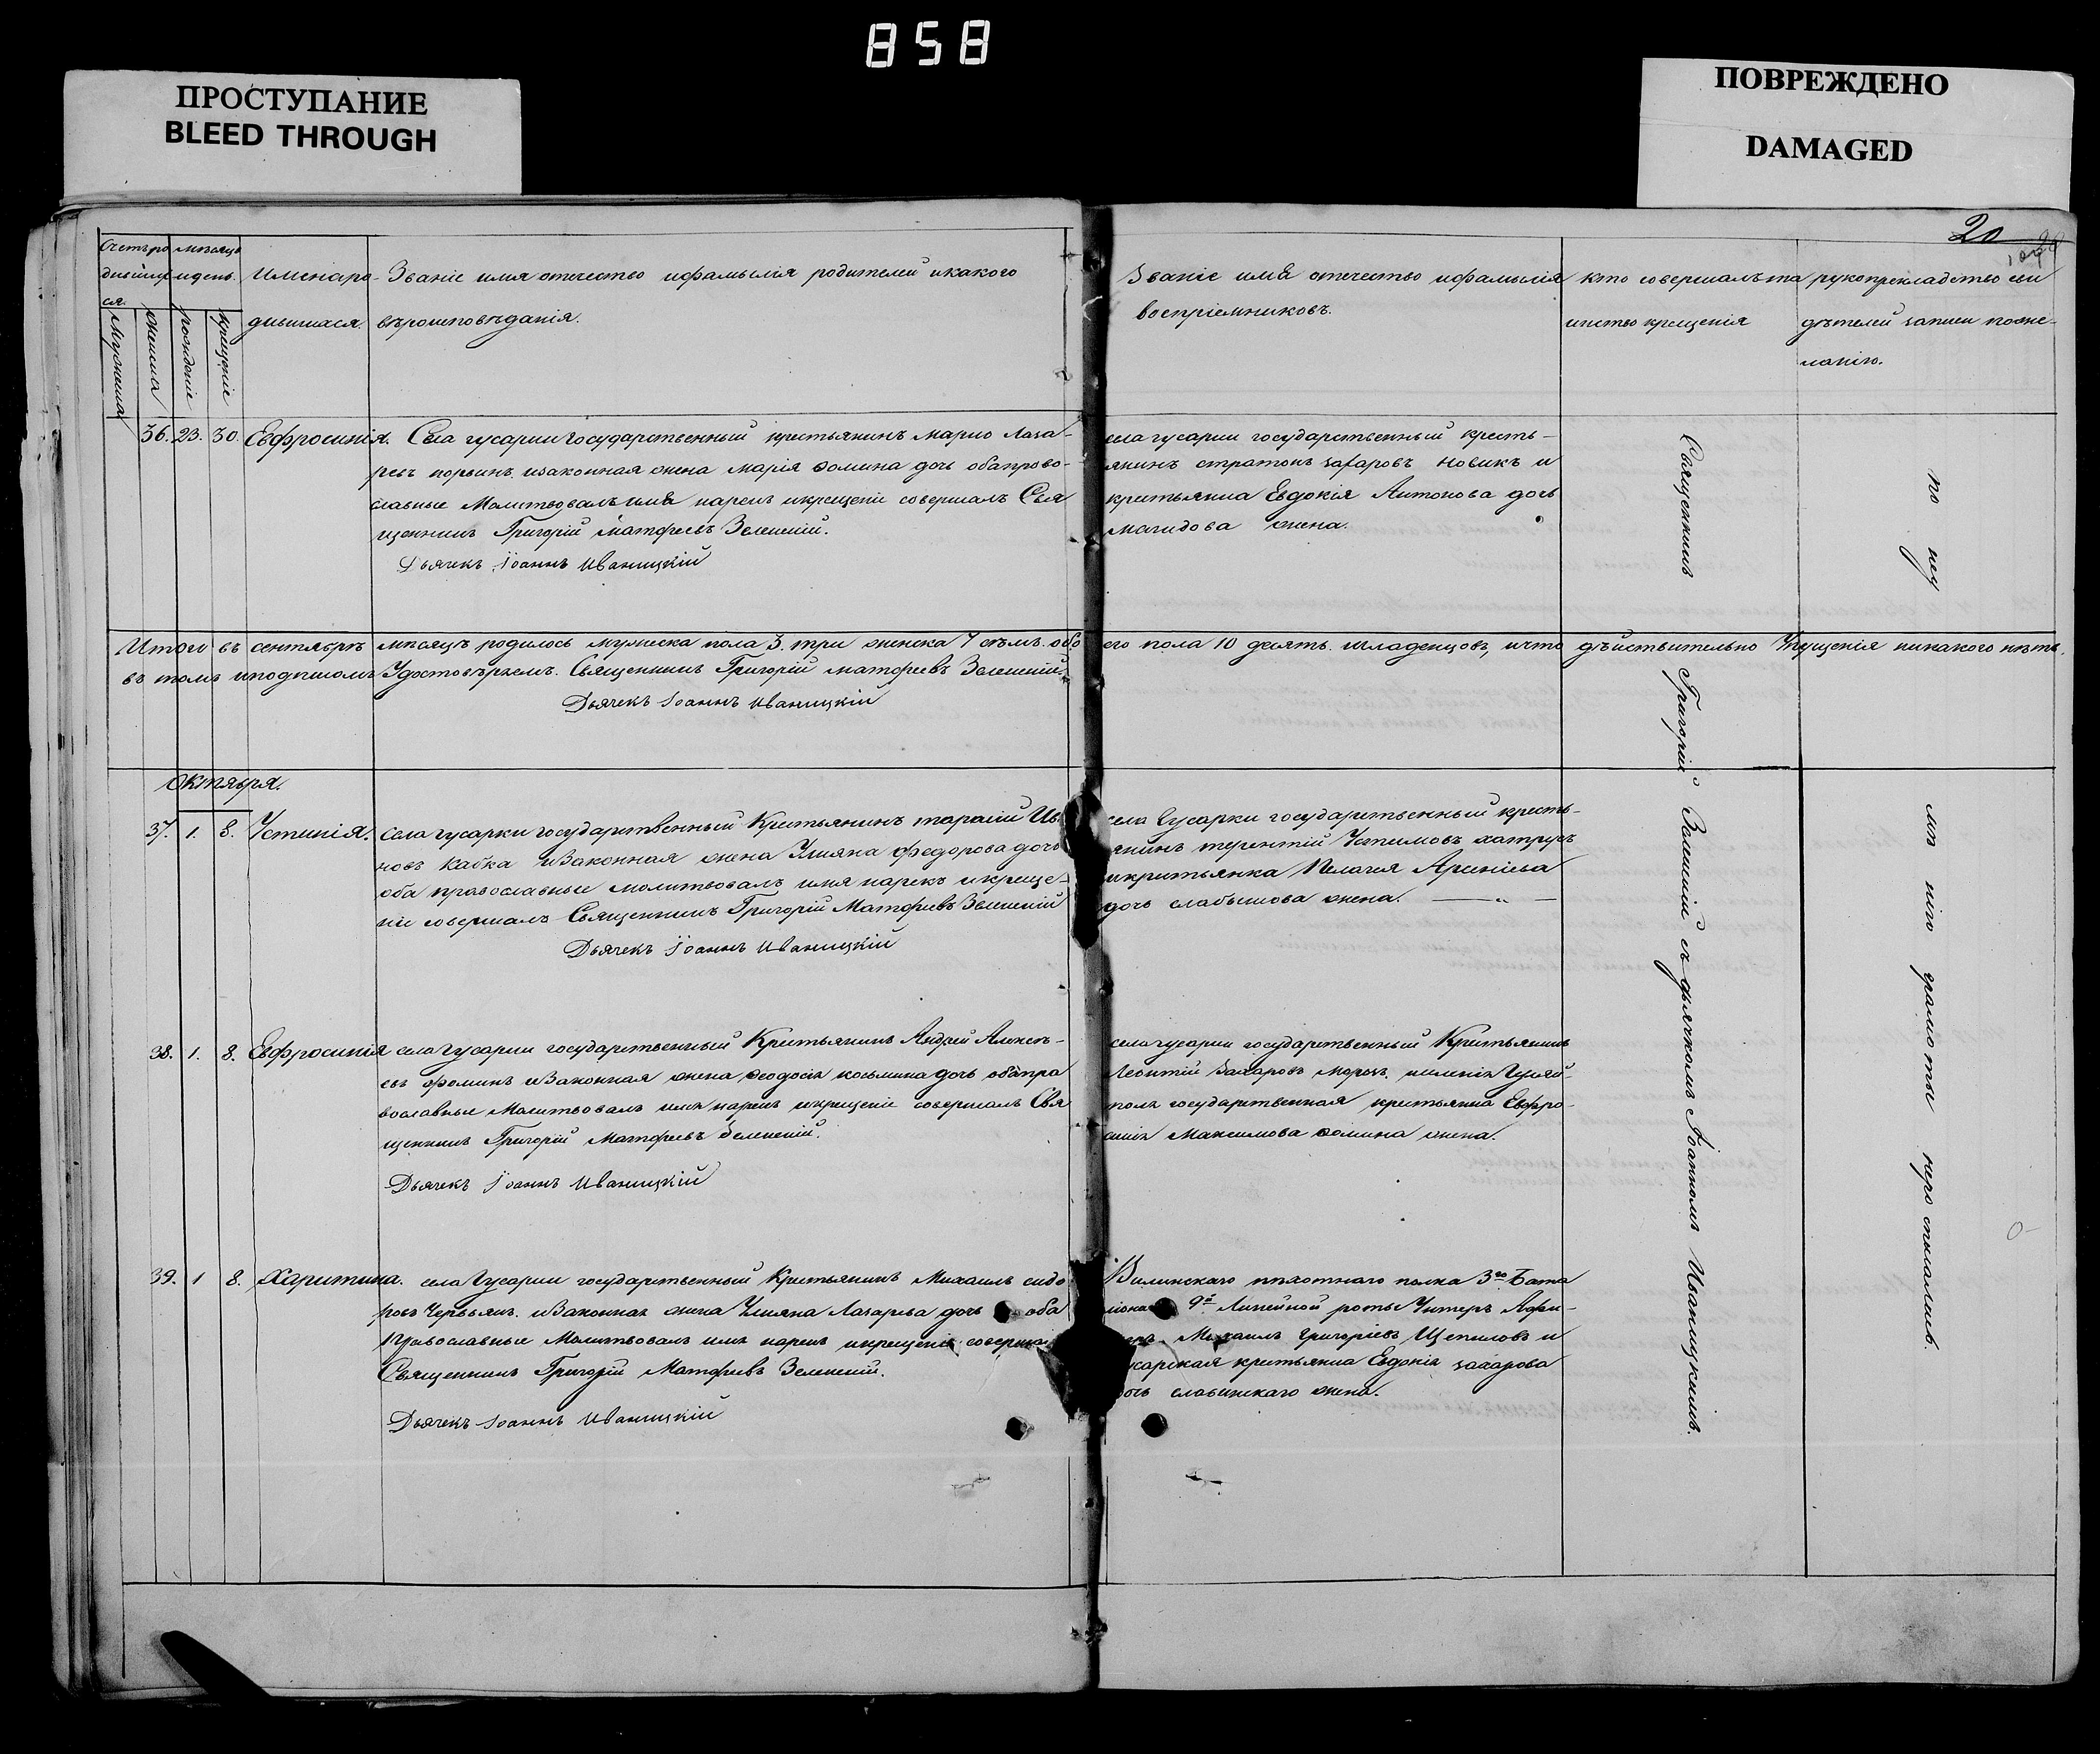 858
ПРОСТУПАНИЕ
BLEED THROUGH
ПОВРЕЖДЕНО
DAMAGED
20
Счетъ ро
дивших
ся.
мѣсяцъ
и день.
Мужеска
женска
рожденіе
крещеніе
Имена ро-
дившихся.
Званіе имя отечество и фамилія родителей и какого
вѣроисповѣданія.
Званіе имя отечество и фамилія
воспріемниковъ.
Кто совершалъ та
инство крещенія
рукоприкладство сви
дѣтелей записи по же-
ланію.
36. 23. 30. Евфросинія.
Села гусарки государственный крестьянинъ Марко Лаза-
ревъ и законная жена Марія Фомина дочь оба право-
славные Молитвовалъ имя нарекъ и крещеніе совершалъ Свя
щенникъ Григорій Матфеевъ Зеленскій.
Дьячекъ Іоаннъ Иваницкій
села гусарки государственный кресть-
янинъ стратонъ захаровъ новикъ и
крестьянка Евдокія Антонова дочь
жена.
Итого въ сентябрѣ мѣсяцѣ родилось мужеска пола 3. три женска 7 семь. обо
его пола 10 десять. младенцовъ, и что дѣйствительно Упущенія никакого нѣтъ.
въ томъ и подписомъ Удостовѣряемъ. Священникъ Григорій Матфеевъ Зеленскій.
Дьячекъ Іоаннъ Иваницкій
Октября.
37. 1. 8. Устинія.
села гусарки государственный Крестьянинъ тарасій Ив
новъ Кабка и Законная жена Ульяна Федорова дочь
оба православные молитвовалъ имя нарекъ и креще-
ніе совершалъ Священникъ Григорій Матфеевъ Зеленскій
Дьячекъ Іоаннъ Иваницкій
села Гусарки государственный кресть-
янинъ терентій Устимовъ
и крестьянка Пелагея Арсеніева
дочь слабышова жена.
38. 1. 8. Евфросинія
села гусарки государственный Крестьянинъ Андрей Алексѣ-
евъ Фоминъ и Законная жена Феодосія косьмина дочь оба пра
вославные Молитвовалъ имя нарекъ и крещеніе совершалъ Свя
щенникъ Григорій Матфеевъ Зеленскій.
Дьячекъ Іоаннъ Иваницкій
села гусарки государственный Крестьянинъ
Леонтій Захаровъ Морозъ и имѣнія Гуляй-
поля государственная крестьянка Евфро-
синія Максимова Фомина жена.
39. 1 8. Харитина.
села Гусарки государственный Крестьянинъ Михаилъ сидо
ровъ и Законная жена Ульяна Лазарева дочь оба
Православные Молитвовалъ имя нарекъ и крещеніе соверша
Священникъ Григорій Матфеевъ Зеленскій.
Дьячекъ Іоаннъ Иваницкій
Виленскаго пѣхотнаго полка 3го Бата
ліона 9й Линейной роты Унтеръ Афи-
Михаилъ Григоріевъ Щепиловъ и
крестьянка Евдокія захарова
славинскаго жена.
Священникъ Григорій Зеленскій съ дьячкомъ Іоанномъ Иваницкимъ.
по неу
мѣ нію грамотѣ